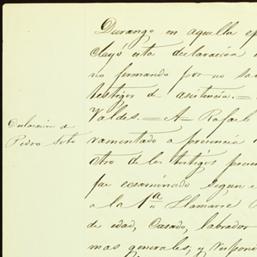 Durango en aquella ep
cluyó esta declaración
no firmando por no sa
testigos de asistencia.=
Valdes.=A=Rafael
Declaración de
Pedro Soto
ramentado a presencia
otro de los testigos presen
fue ecsaminado segun e
a la 1ª Llamarse
de edad, Casado, labrador
mas generales, y respon